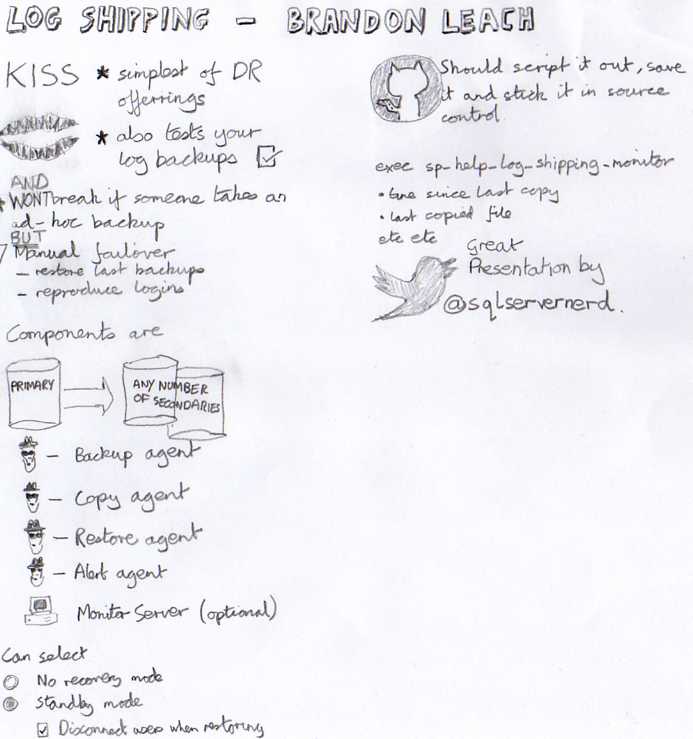 LOG SHIPPING - BRANDON LEACH
KISS * simplest of DR
offerings
* also tests your
log backups
AND
* WONT break if someone takes an
ad-hoc backup
BUT
Manual failover
- restore last backups
- reproduce logins
Components are
PRIMARY
ANY NUMBER
OF SECONDARIES
- Backup agent
- Copy agent
- Restore agent
- Alert agent
Monitor Server (optional)
Can select
No recovery mode
Standby mode
Disconnect users when restoring
Should script it out, save
it and stick it in source
control.
exec sp_help_log_shipping_monitor
• time since last copy
• last copied file
etc etc
Great
Presentation by
@sqlservernerd.